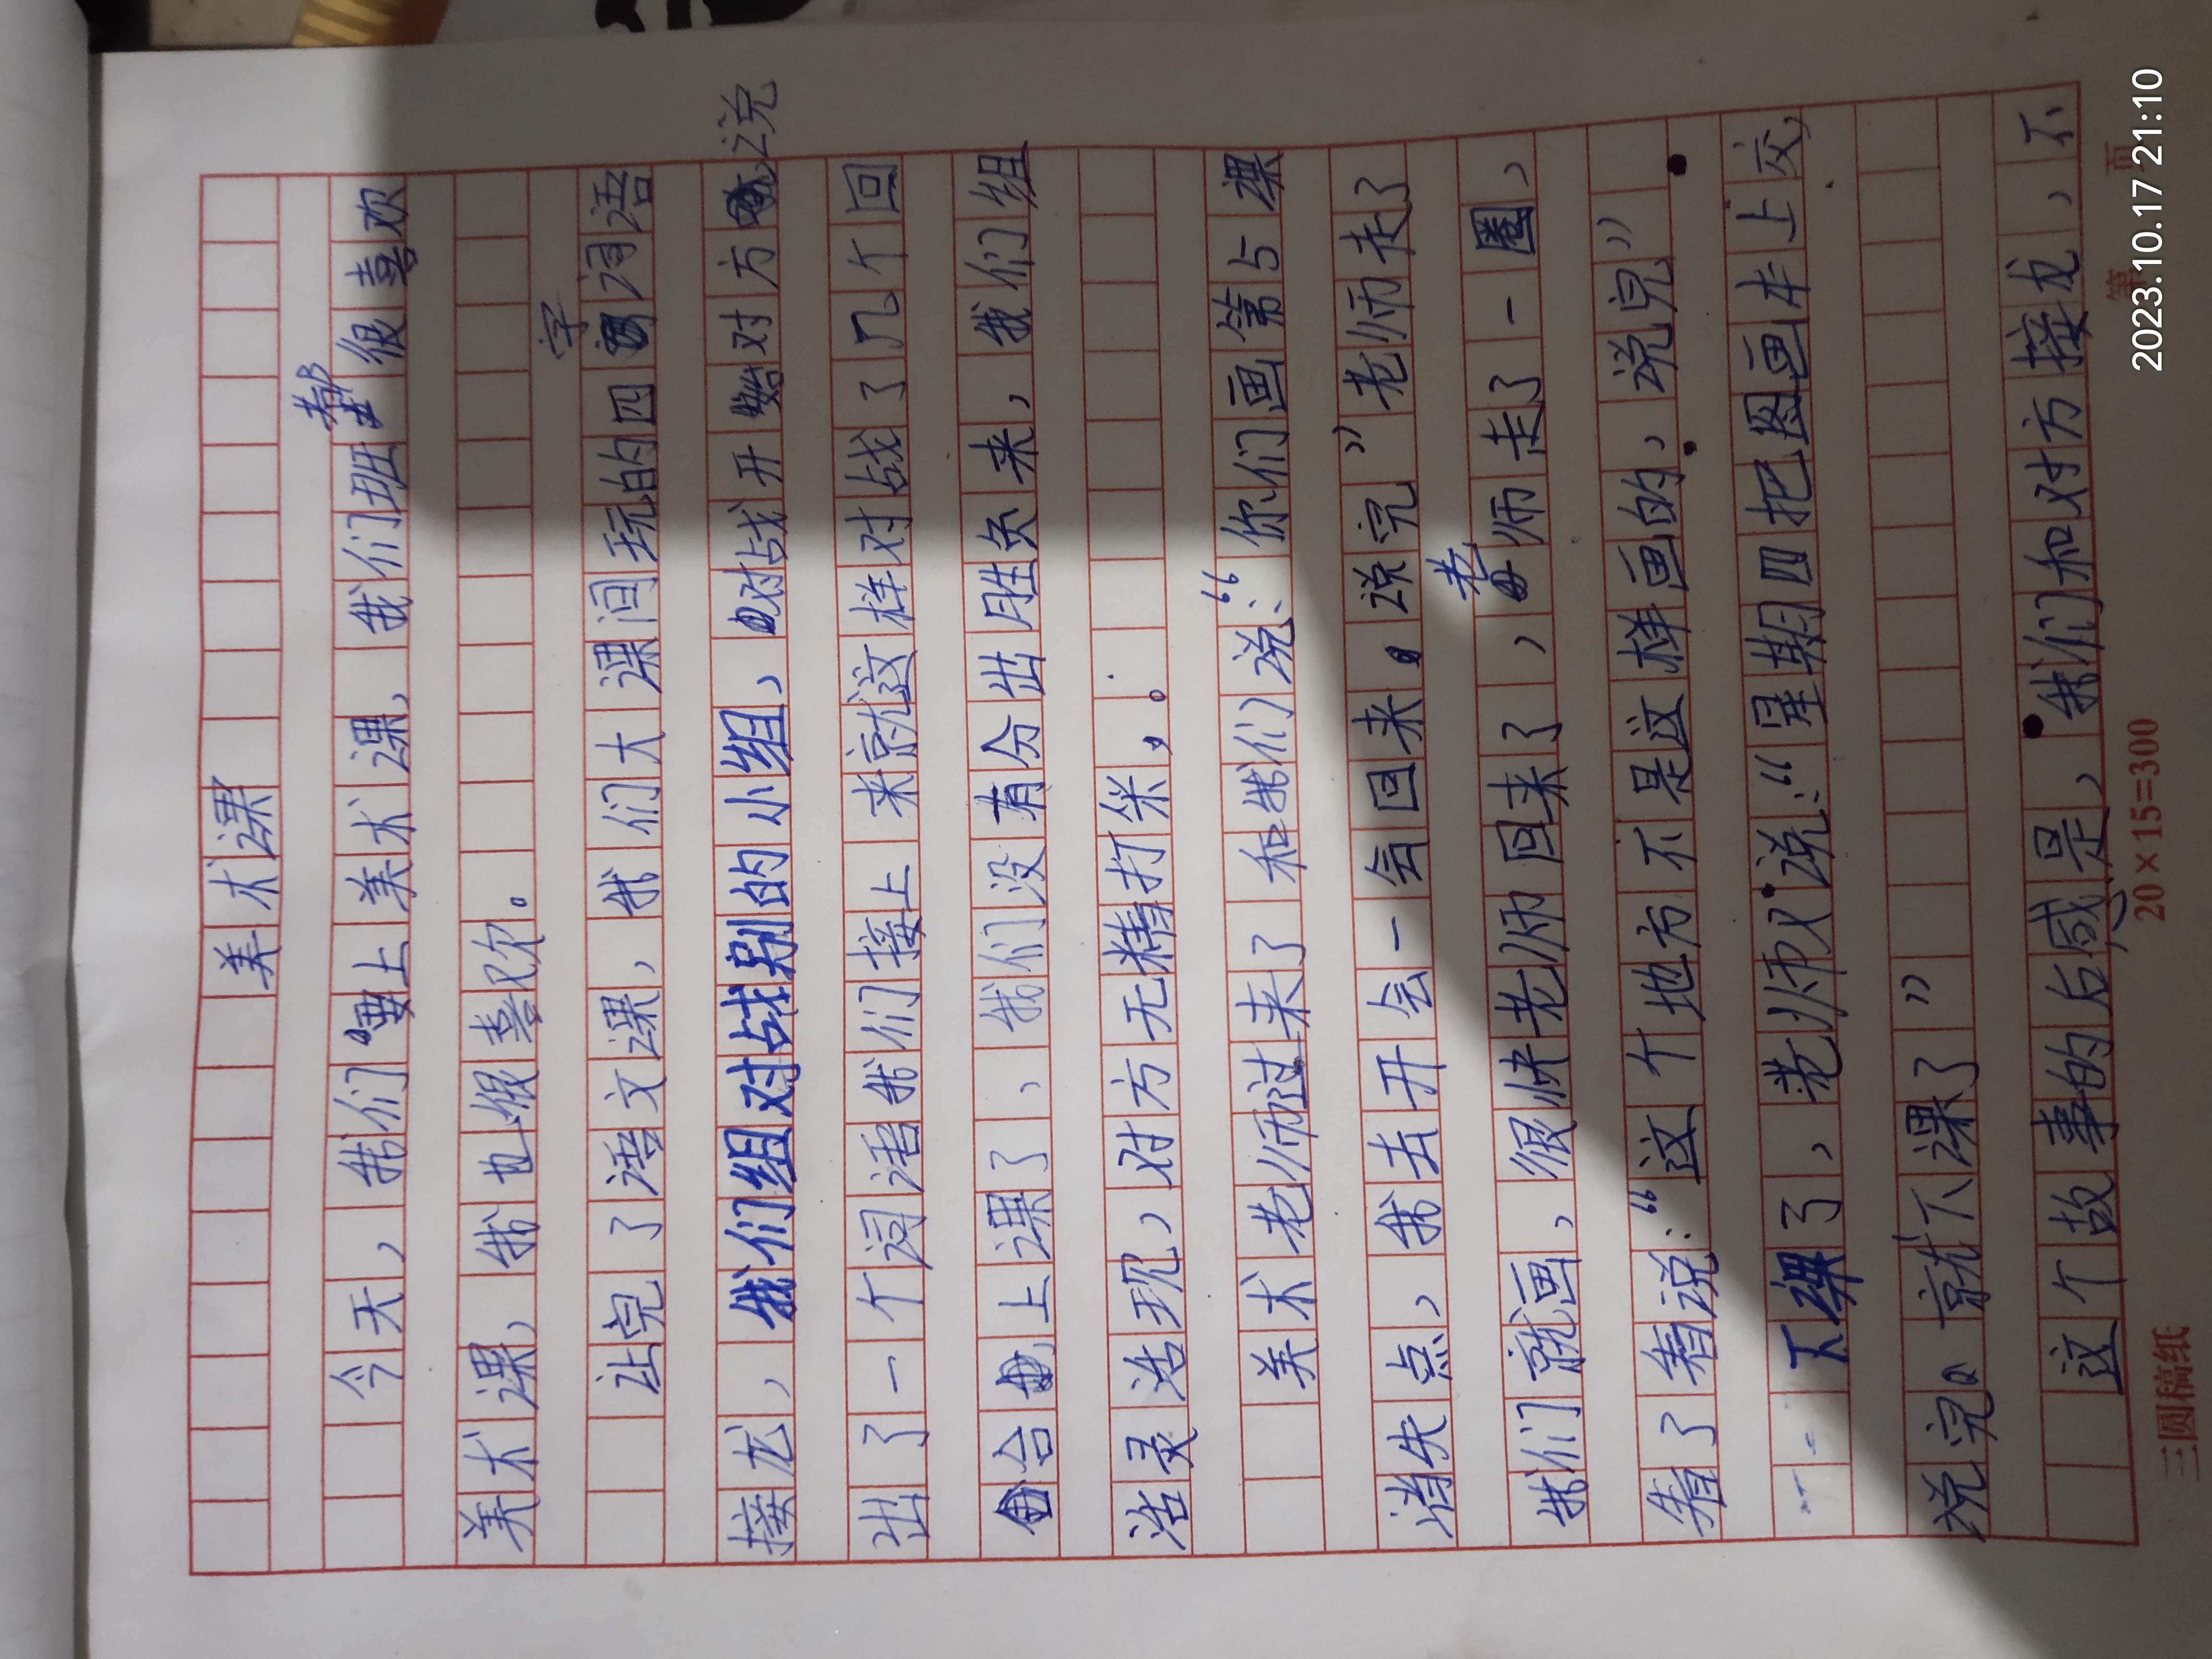 美术课
今天，我们要上美术课，我们班都很喜欢
美术课，我也很喜欢。
让完了语文课，我们大课间玩的四字词语
接龙，我们组对战别的小组，对战开始对方说
出了一个词语我们接上来就这样对战了几个回
合上课了，我们没有分出胜负来，我们组
活灵活现，对方无精打采。
美术老师过来了和我们说：“你们画第5课
消失点，我去开会一会回来。说完”老师走了
我们就画，很快老师回来了，老师走了一圈，
看了看说：“这个地方不是这样画的，说完”
下课了，老师又说：“星期四把图画本上交，
说完。就下课了”
这个故事的后感是，我们和对方接龙，不
三圆稿纸
20×15=300
第 页
2023.10.17 21:10